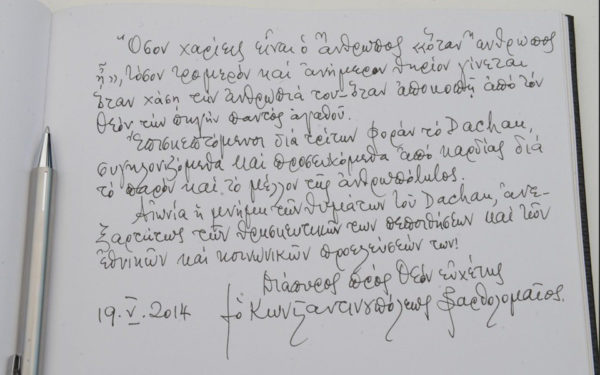 "Ὅσον χαρίεις εἶναι ὁ ἄνθρωπος «ὅταν ἄνθρωπος
ᾖ», τόσον τρομερὸν καὶ ἀνήμερον θηρίον γίνεται
ὅταν χάσῃ τὴν ἀνθρωπιά του - ὅταν ἀποκοπῇ ἀπὸ τὸν
Θεόν τὴν πηγὴν παντὸς ἀγαθοῦ.
Ἐπισκεπτόμενοι διὰ τρίτην φορὰν τὸ Dachau,
συγκλονιζόμεθα καὶ προσευχόμεθα ἀπὸ καρδίας διὰ
τὸ παρὸν καὶ τὸ μέλλον τῆς ἀνθρωπότητος.
Αἰωνία ἡ μνήμη τῶν θυμάτων τοῦ Dachau, ἀνε-
ξαρτήτως τῶν θρησκευτικῶν των πεποιθήσεων καὶ τῶν
ἐθνικῶν καὶ κοινωνικῶν προελεύσεών των!
Διάπυρος πρὸς Θεὸν εὐχέτης
19.V.2014 † ὁ Κωνσταντινουπόλεως Βαρθολομαῖος.